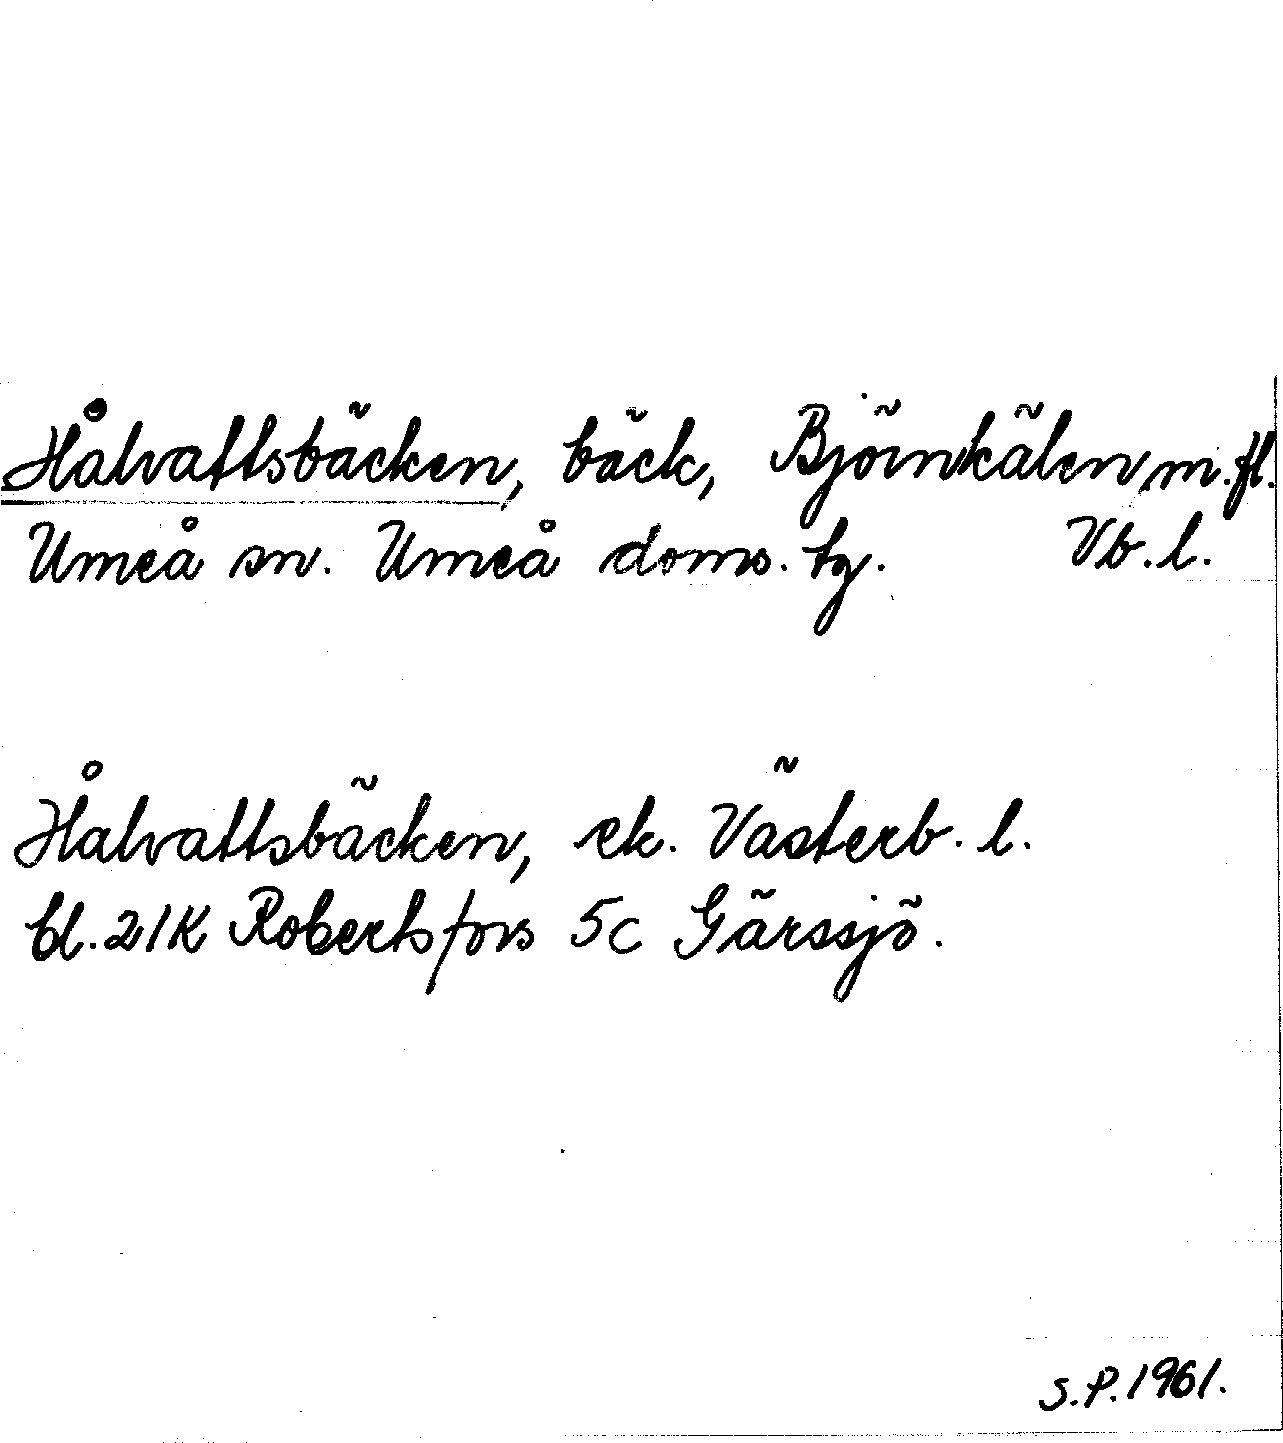 Hålvattsbäcken, bäck, Björnkälen, m.fl.
Umeå sn. Umeå doms. tg. Vb. l.
Hålvattsbäcken, ek. Västerb. l.
bl. 21K Robertsfors 5c Gärssjö.
S.P. 1961.